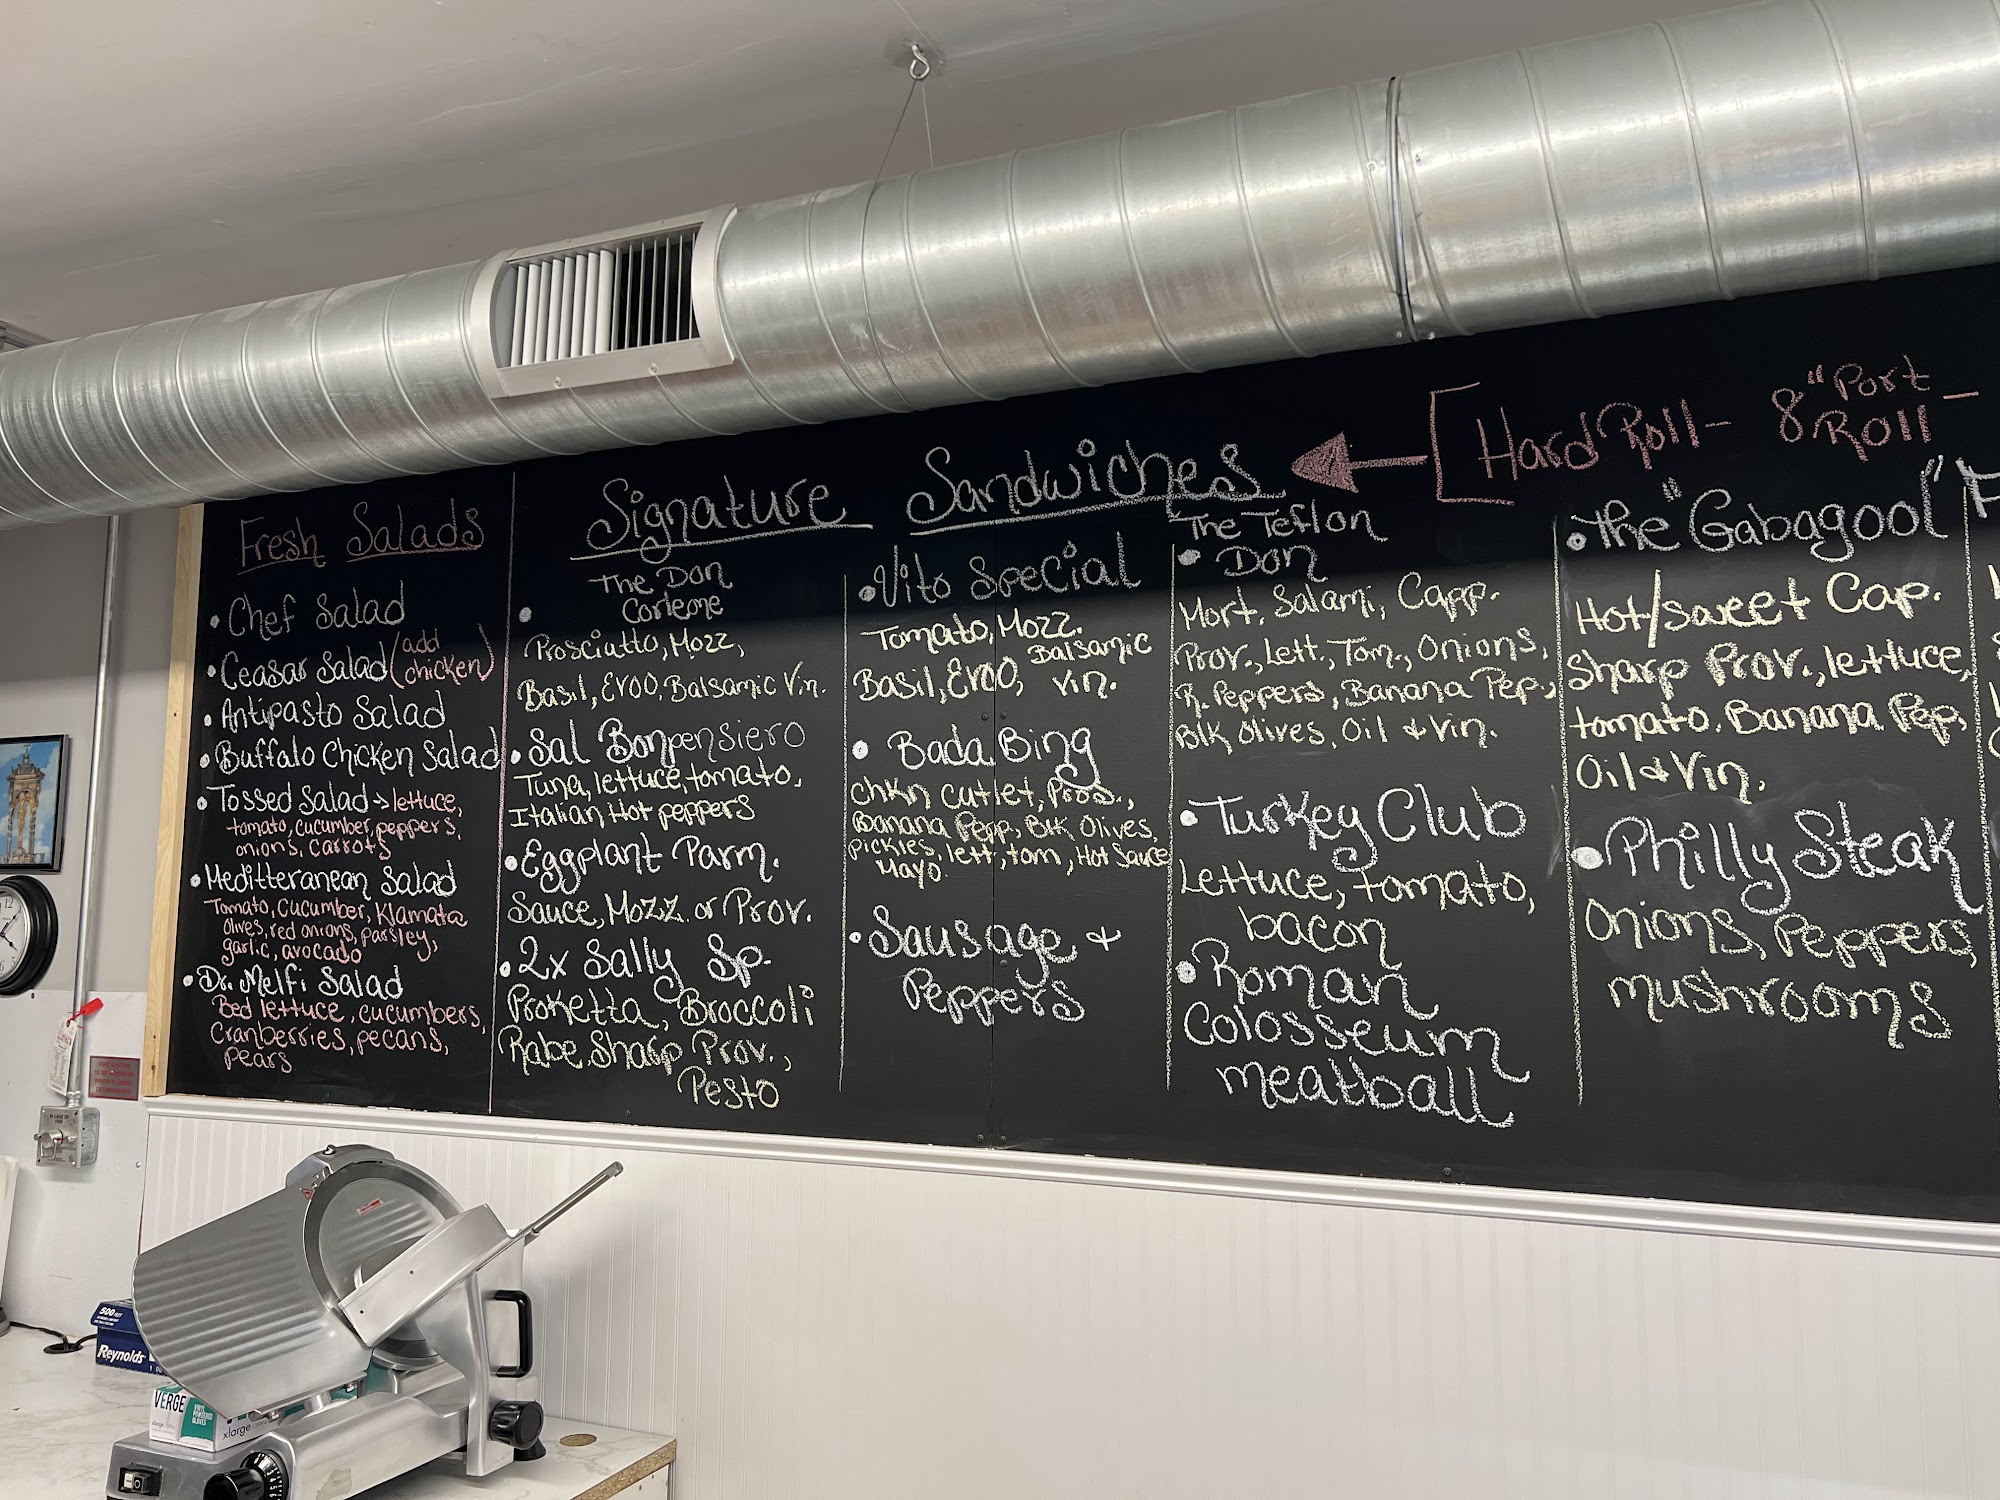 Fresh Salads
• Chef Salad
• Ceasar Salad (add chicken)
• Antipasto Salad
• Buffalo Chicken Salad
• Tossed Salad -> lettuce,
tomato, cucumber, peppers,
onions, carrots
• Meditteranean Salad
Tomato, Cucumber, Klamata
Olives, red onions, parsley,
garlic, avocado
• Dr. Melfi Salad
Bed lettuce, cucumbers,
Cranberries, pecans,
pears
Signature Sandwiches
[Hard Roll - 8" Port Roll -
• The Don
Corleone
Prosciutto, Mozz,
Basil, EVOO, Balsamic Vin.
• Sal Bonpensiero
Tuna, lettuce, tomato,
Italian Hot peppers
• Eggplant Parm.
Sauce, Mozz. or Prov.
• 2x Sally Sp.
Broccoli
Rabe, Sharp Prov.,
Pesto
• Vito Special
Tomato, Mozz.
Basil, EVOO, Balsamic Vin.
• Bada Bing
Chkn Cutlet, Prov.,
Banana Pepp, Blk Olives,
Pickles, lett, tom, Hot Sauce
Mayo
• Sausage +
Peppers
• The Teflon
Don
Mort, Salami, Capp.
Prov., Lett., Tom., Onions,
R. Peppers, Banana Pep.,
Blk Olives, Oil + Vin.
• Turkey Club
Lettuce, tomato,
bacon
• Roman
Colosseum
meatball
• The "Gabagool"
Hot/Sweet Cap.
Sharp Prov., lettuce,
tomato. Banana Pep,
Oil + Vin.
• Philly Steak
Onions, Peppers,
mushrooms
IN CASE OF
FIRE
500
Reynolds
VERGE
xlarge